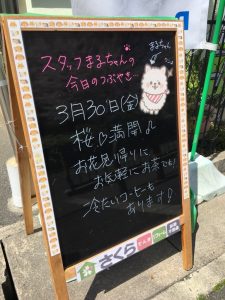 スタッフまるちゃんの
今日のつぶやき…
まるちゃん
3月30日(金)
桜も満開♪
お花見帰りに
お気軽にお茶でも!
冷たいコーヒーも
あります!
さくら